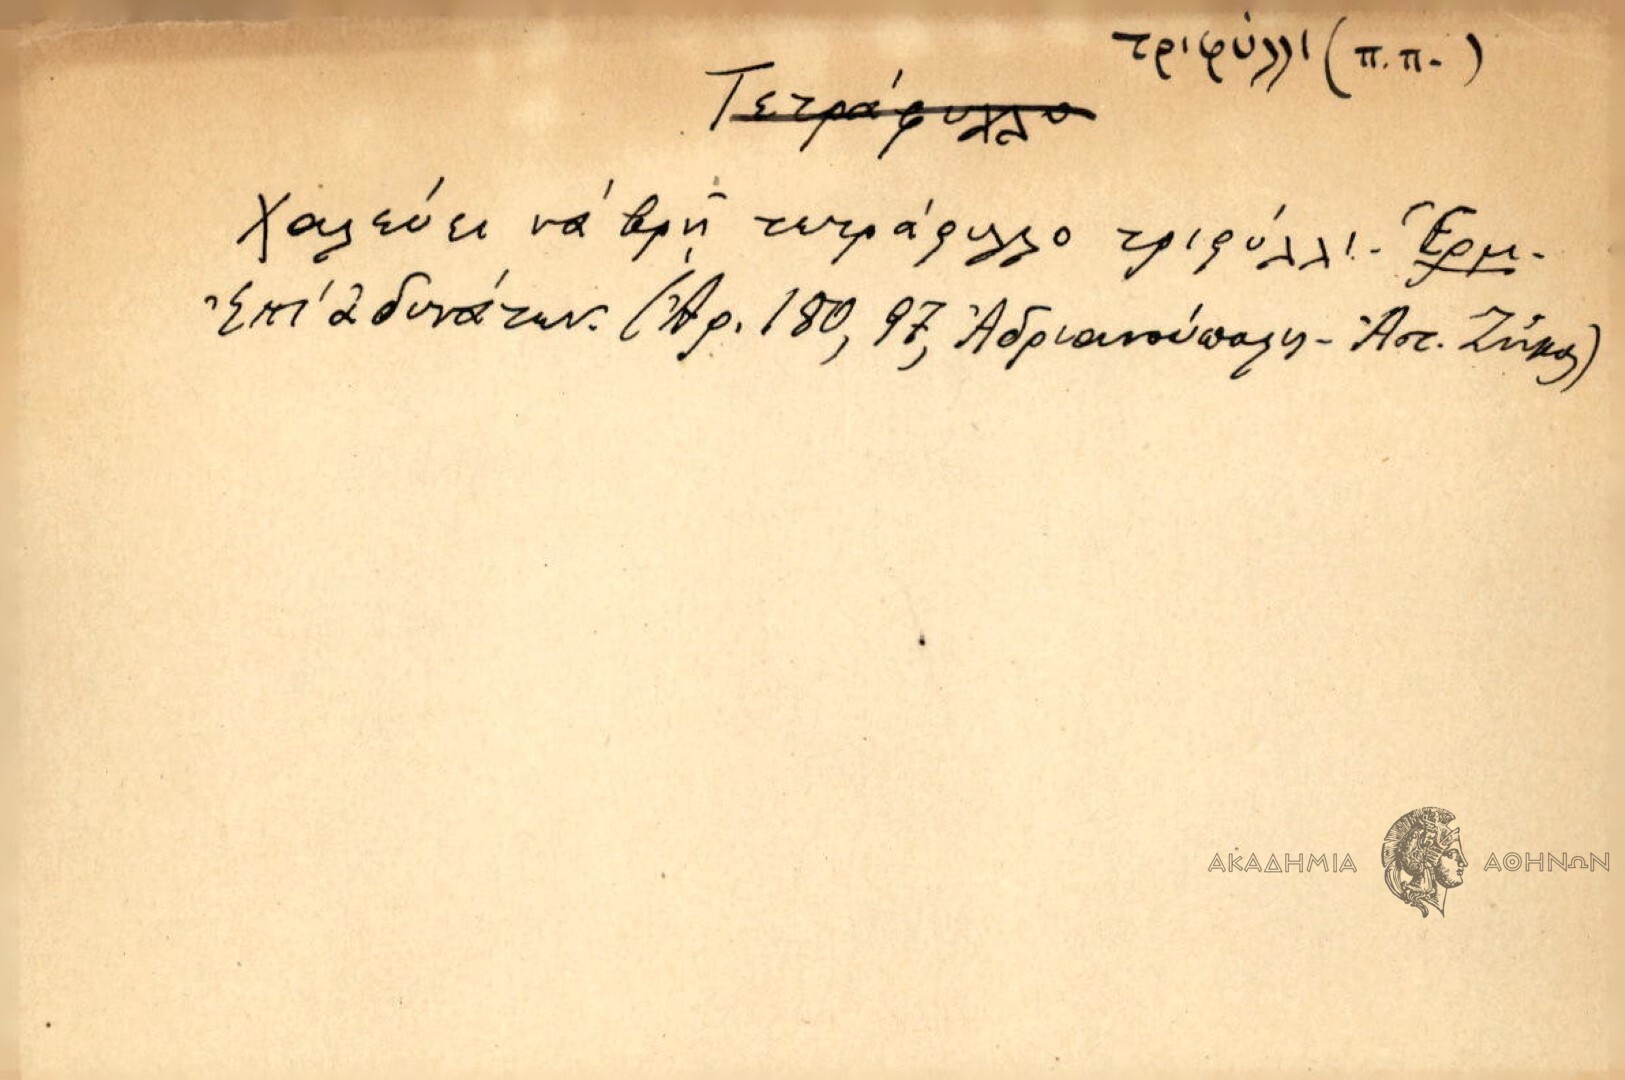 τριφύλλι (π.π.)
Τετράφυλλο
Χαλεύει νά βρῇ τετράφυλλο τριφύλλι. Ἑρμ.
Ἐπί ἀδυνάτων. (Ἀρ. 180, 97, Ἀδριανούπολη - Ἀπ.
ΑΚΑΔΗΜΙΑ ΑΘΗΝΩΝ